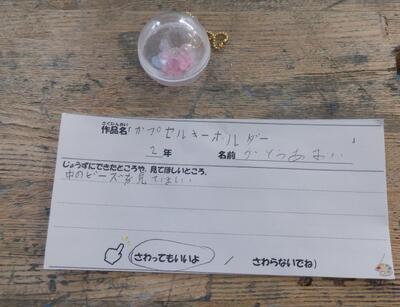 さくひんめい
作品名「カプセルキーホルダー」
2年 名前 かとうあおい
じょうずにできたところや、見てほしいところ。
中のビーズを見てほしい
さわってもいいよ / さわらないでね)